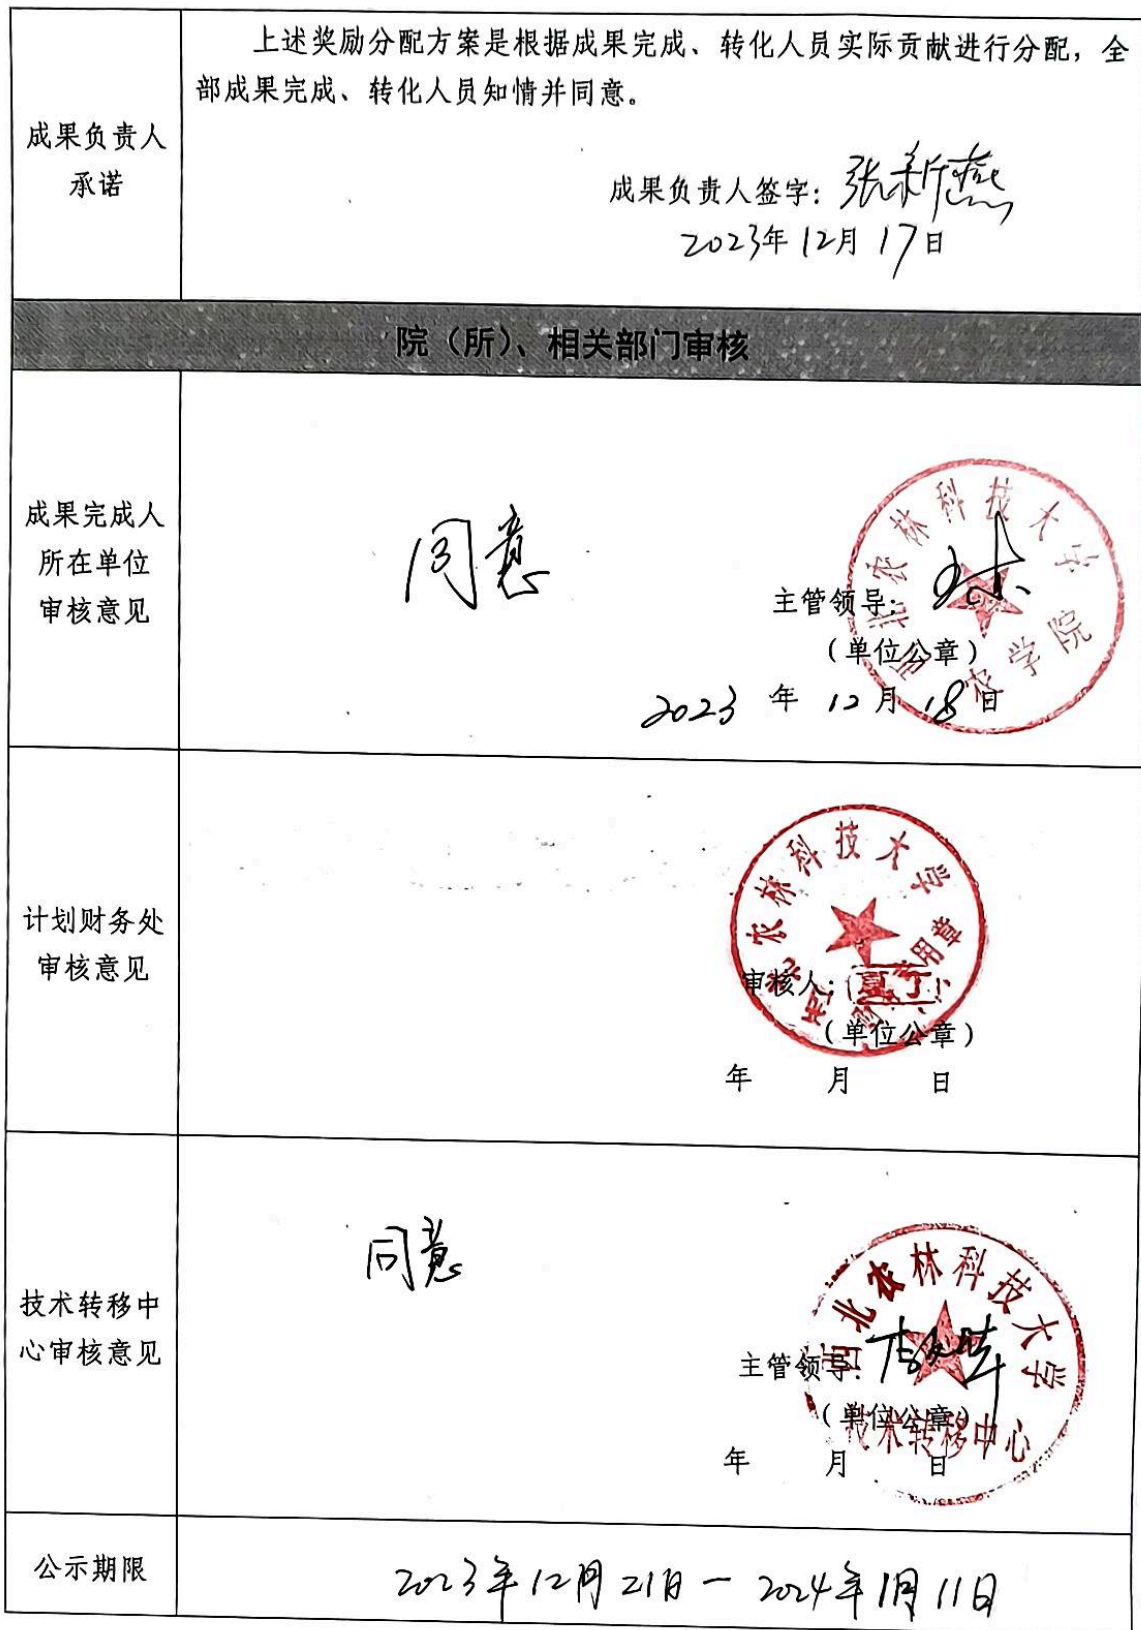 上述奖励分配方案是根据成果完成、转化人员实际贡献进行分配，全
部成果完成、转化人员知情并同意。
成果负责人
承诺
成果负责人签字：张新燕
2023年12月17日
院（所）、相关部门审核
成果完成人
所在单位
审核意见
同意
西北农林科技大学
农学院
主管领导：
（单位公章）
2023 年 12 月 18 日
计划财务处
审核意见
西北农林科技大学
用章
审核人：
（单位公章）
年 月 日
技术转移中
心审核意见
同意
西北农林科技大学
技术转移中心
主管领导：
（单位公章）
年 月 日
公示期限
2023年12月21日 — 2024年1月11日